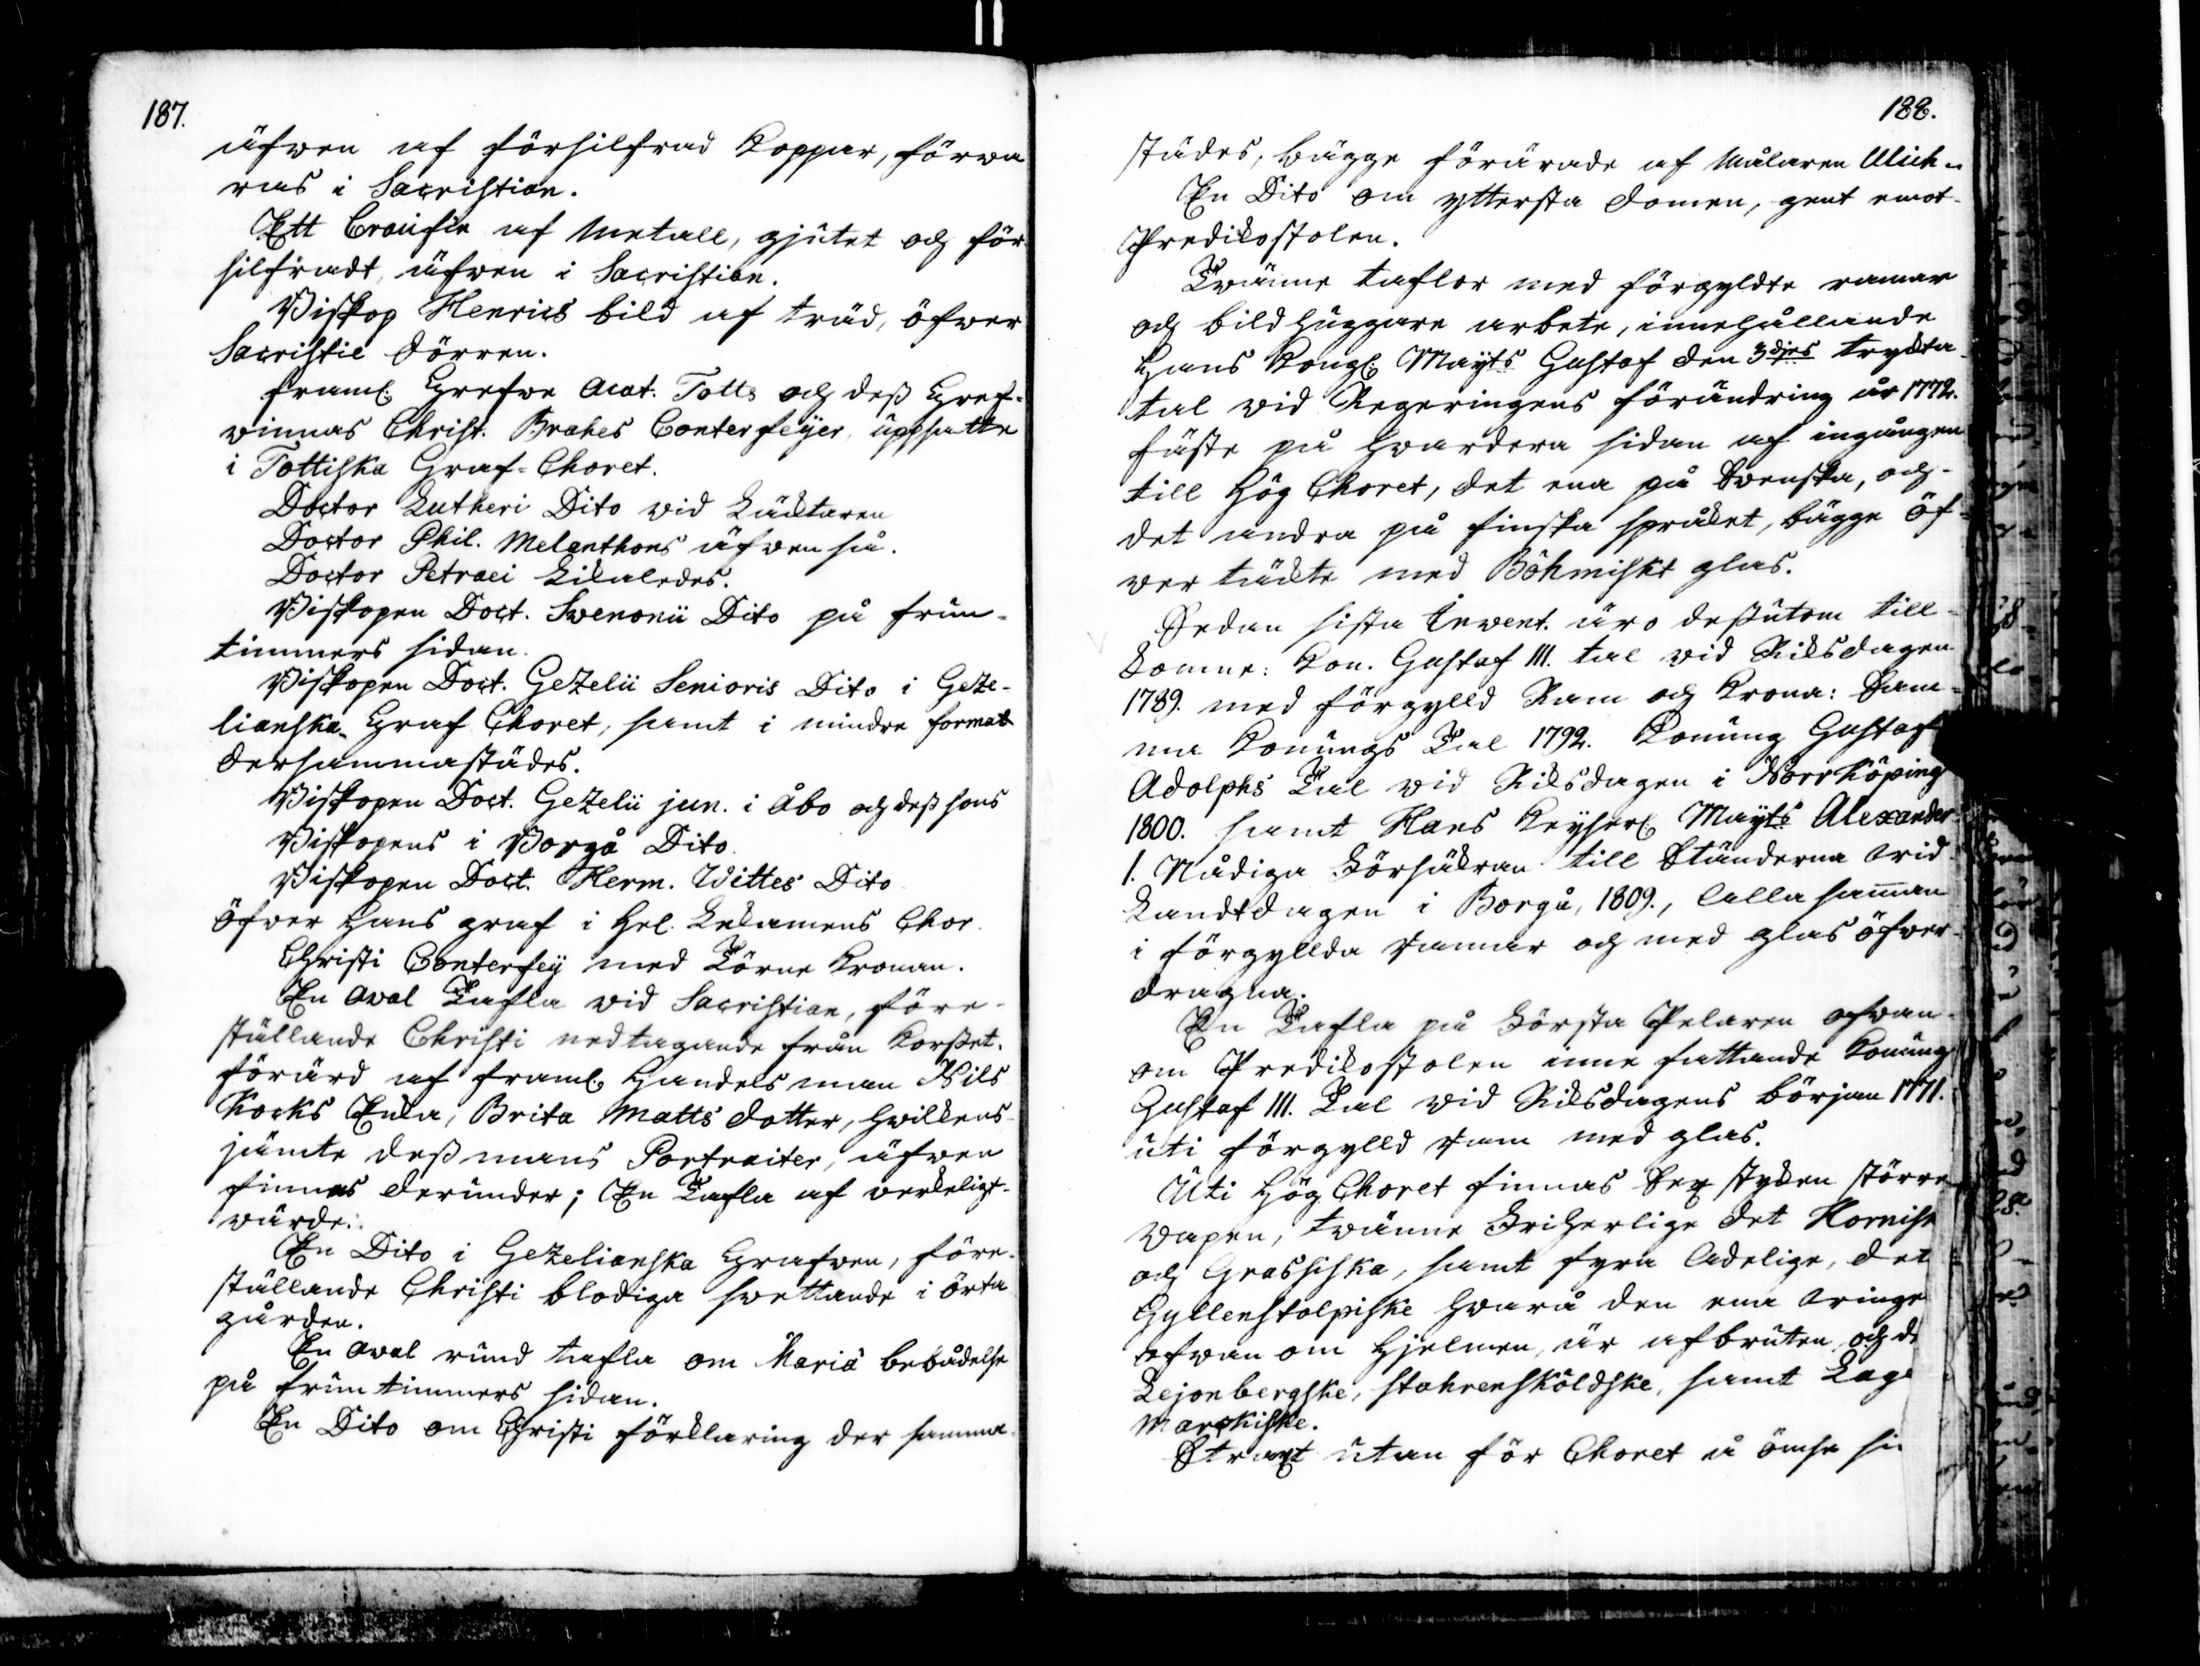 187.
äfwen af försilfrad Koppar, förwa
ras i Sacristian.
Ett Crucifix af Metall, gjutet och för
silfradt, äfwen i Sacristian.
Biskop Henrics bild af träd, öfwer
Sacristie dörren.
framl. Grefwe Acat. Totts och dess Gref-
winnas Christ. Brahes Conterfeijer, uppsatte
i Tottiska Graf-Choret.
Doctor Lutheri Dito wid Läcktaren
Doctor Phil. Melanthons äfwen så.
Doctor Petraei Likaledes.
Biskopen Doct. Svenonii Dito på frun-
timmers sidan.
Biskopen Doct. Gezelii Senioris Dito i Geze-
lianska Graf Choret, samt i mindre format
dersammastädes.
Biskopen Doct. Gezelii jun. i Åbo och dess sons
Biskopens i Borgå Dito.
Biskopen Doct. Herm. Wittes Dito
öfwer hans graf i Hel. Lekamens Chor.
Christi Conterfeij med Törne Kronan.
En Oval Tafla wid Sacristian, före-
ställande Christi nedtagande från Korsset.
förärd af framl. Handelsman Nils
Kocks Enka, Brita Matts dotter, hwilkens
jämte dess mans Portraiter, äfwen
finnas derunder; En Tafla af werkeligt
wärde.
En Dito i Gezelianska Grafwen, före-
ställande Christi blodiga swettande i örta
gården.
En Oval rund tafla om Mariä bebådelse
på fruntimmers sidan.
En Dito om Christi förklaring der samma
188.
städes, bägge förärade af Målaren
En Dito om yttersta domen, gent emot
Predikostolen.
Twänne taflor med förgyldte ramar
och bildhuggare arbete, innehållande
Hans Kongl. Mayts Gustaf den 3djes tryckta
tal wid Regeringens förändring år 1772.
fäste på hwardera sidan af ingången
till Hög Choret, det ena på Swenska, och
det andra på finska språket, bägge öf-
wer täckte med Böhmiskt glas.
Sedan sista Invent. äro dessutom till-
komne: Kon. Gustaf III. tal wid Riksdagen
1789. med förgylld Ram och Krona: Sam-
ma Konungs Tal 1792. Konung Gustaf
Adolphs Tal wid Riksdagen i Norrköping
1800. samt Hans Keyserl. Mayts Alexander
1. Nådiga Försäkran till Ständerna wid
Landtdagen i Borgå, 1809., alla samman
i förgyllda ramar och med glas öfwer-
dragna.
En Tafla på första Pelaren ofwan-
om Predikostolen inne fattande Konung
Gustaf III. Tal wid Riksdagens början 1771.
uti förgylld ram med glas.
Uti Hög Choret finnas Sex stycken större
wapen, twänne Friherlige det Hornisk
och Grassiska, samt fyra Adelige, det
Gyllenstolpiske hwarå den ena winge
ofwan om Hjelmen, är afbruten, och d
Lejonbergske, Stahrensköldske, samt Lag
Marckiske.
Straxt utan för Choret å ömse si